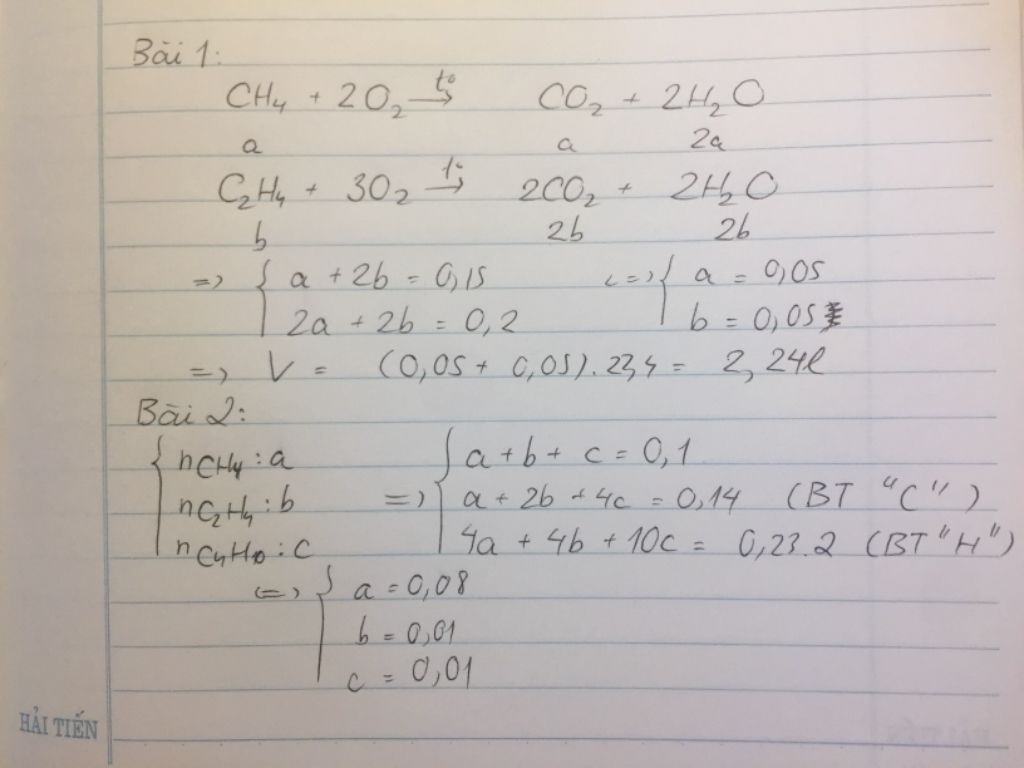 Bài 1:
CH₄ + 2O₂ →(t°) CO₂ + 2H₂O
a a 2a
C₂H₄ + 3O₂ →(t°) 2CO₂ + 2H₂O
b 2b 2b
=> { a + 2b = 0,15 <=> { a = 0,05
2a + 2b = 0,2 b = 0,05
=> V = (0,05 + 0,05).22,4 = 2,24l
Bài 2:
{ nCH₄ : a { a + b + c = 0,1
nC₂H₄ : b => a + 2b + 4c = 0,14 (BT "C")
nC₄H₁₀ : c 4a + 4b + 10c = 0,23.2 (BT "H")
<=> { a = 0,08
b = 0,01
c = 0,01
HẢI TIẾN